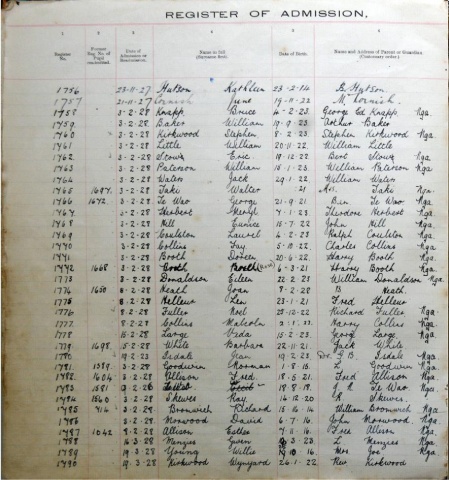 REGISTER OF ADMISSION.
1 2 3 4 5 6
Register No. Former Reg. No. of Pupil readmitted. Date of Admission or Readmission. Name in full (Surname first) Date of Birth. Name and Address of Parent or Guardian
1756 23-11-27 Hutson Kathleen 23-2-14 B. Hutson
1757 21-11-27 Cornish June 19-11-22 M. Cornish
1458 3-2-28 Knapp Bruce 4-2-23 George Ed Knapp Nga.
1459 3-2-28 Baker William 19-9-23 Arthur Baker
1460 3-2-28 Kirkwood Stephen 8-2-23 Stephen Kirkwood Nga
1461 3-2-28 Little William 20-11-22 William Little
1462 3-2-28 Eric 19-12-22 Bert Nga
1463 3-2-28 Paterson William 15-1-23 William Paterson Nga
1464 3-2-28 Water Jack 29-1-22 William Water
1465 1697 3-2-28 Taki Walter 21 Mrs. Taki Nga
1466 1672 3-2-28 Te Wao George 21-9-21 Ben Te Wao Nga
1467 3-2-28 Herbert Meryl 4-1-23 Theodore Herbert Nga
1468 3-2-28 Hill Eunice 15-7-22 John Hill Nga
1469 3-2-28 Coulston Laurel 16-2-23 Ralph Coulston Nga
1470 3-2-28 Collins Fay 5-10-22 Charles Collins Nga
1471 3-2-28 Booth Doreen 20-6-22 Harry Booth Nga
1772 1668 3-2-28 Booth 6-3-21 Harry Booth Nga
1773 3-2-28 Donaldson Eileen 22-2-23 William Donaldson Nga
1774 1650 8-2-28 Heath Joan 8-2-28 B. Heath
1775 8-2-28 Len 23-1-21 Fred
1776 8-2-28 Fuller Noel 23-12-22 Richard Fuller Nga
1777 8-2-28 Collins Malcolm Harry Collins Nga
1778 15-2-28 Large Veda 15-2-23 George Large Nga
1779 1698 15-2-28 White Barbara 22-11-21 Jack White Nga
1780 19-2-23 Tisdale Jean 19-2-23 Dr. G B. Tisdale Nga
1781 1389 3-2-28 Goodwin Norman 1-8-15 L Goodwin Nga
1782 1604 3-2-28 Allison Fred 18-5-21 Fred Allison Nga
1783 1581 9-2-28 18-8-18 Te Wao Nga
1784 1560 3-2-28 Skewes Ray 14-12-20 R Skewes
1785 414 3-2-28 Bromwich Richard 15-6-14 William Bromwich Nga
1786 3-2-28 Norwood David 6-7-16 John Norwood Nga
1787 1042 8-2-28 Allison Esther 4-11-16 Fred Allison Nga
1788 16-3-28 Menzies Gwen 9-3-23 L Menzies Nga
1789 19-3-28 Young Willie 19-10-16 Mrs Joe Nga
1790 19-3-28 Kirkwood Wynyard 26-1-22 Rev Kirkwood